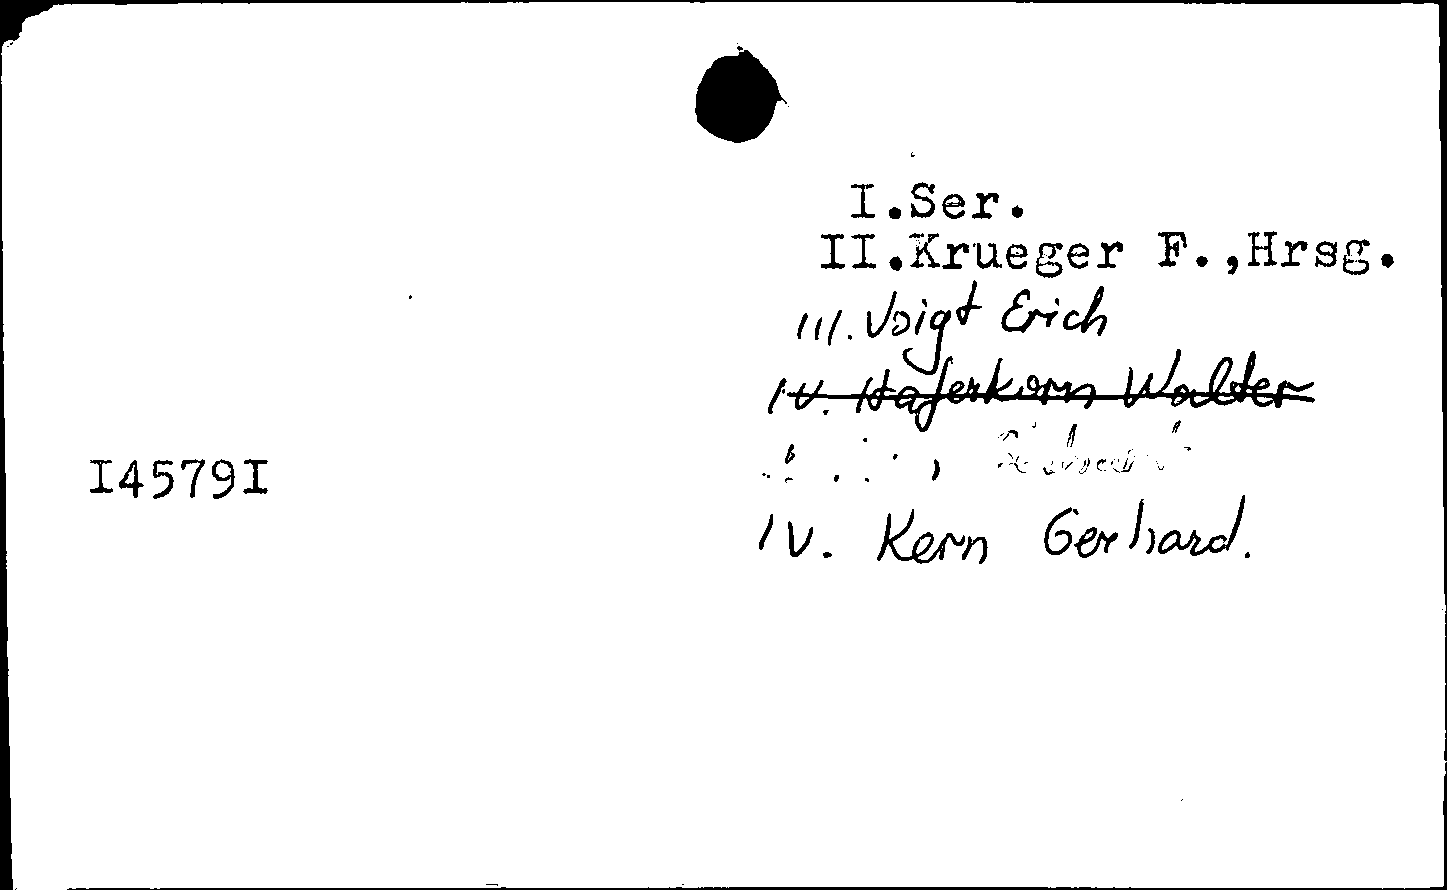 I.Ser.
II.Krueger F.,Hrsg.
III. Voigt Erich
IV. Haferkorn Walter
I4579I
IV. Kern Gerhard.